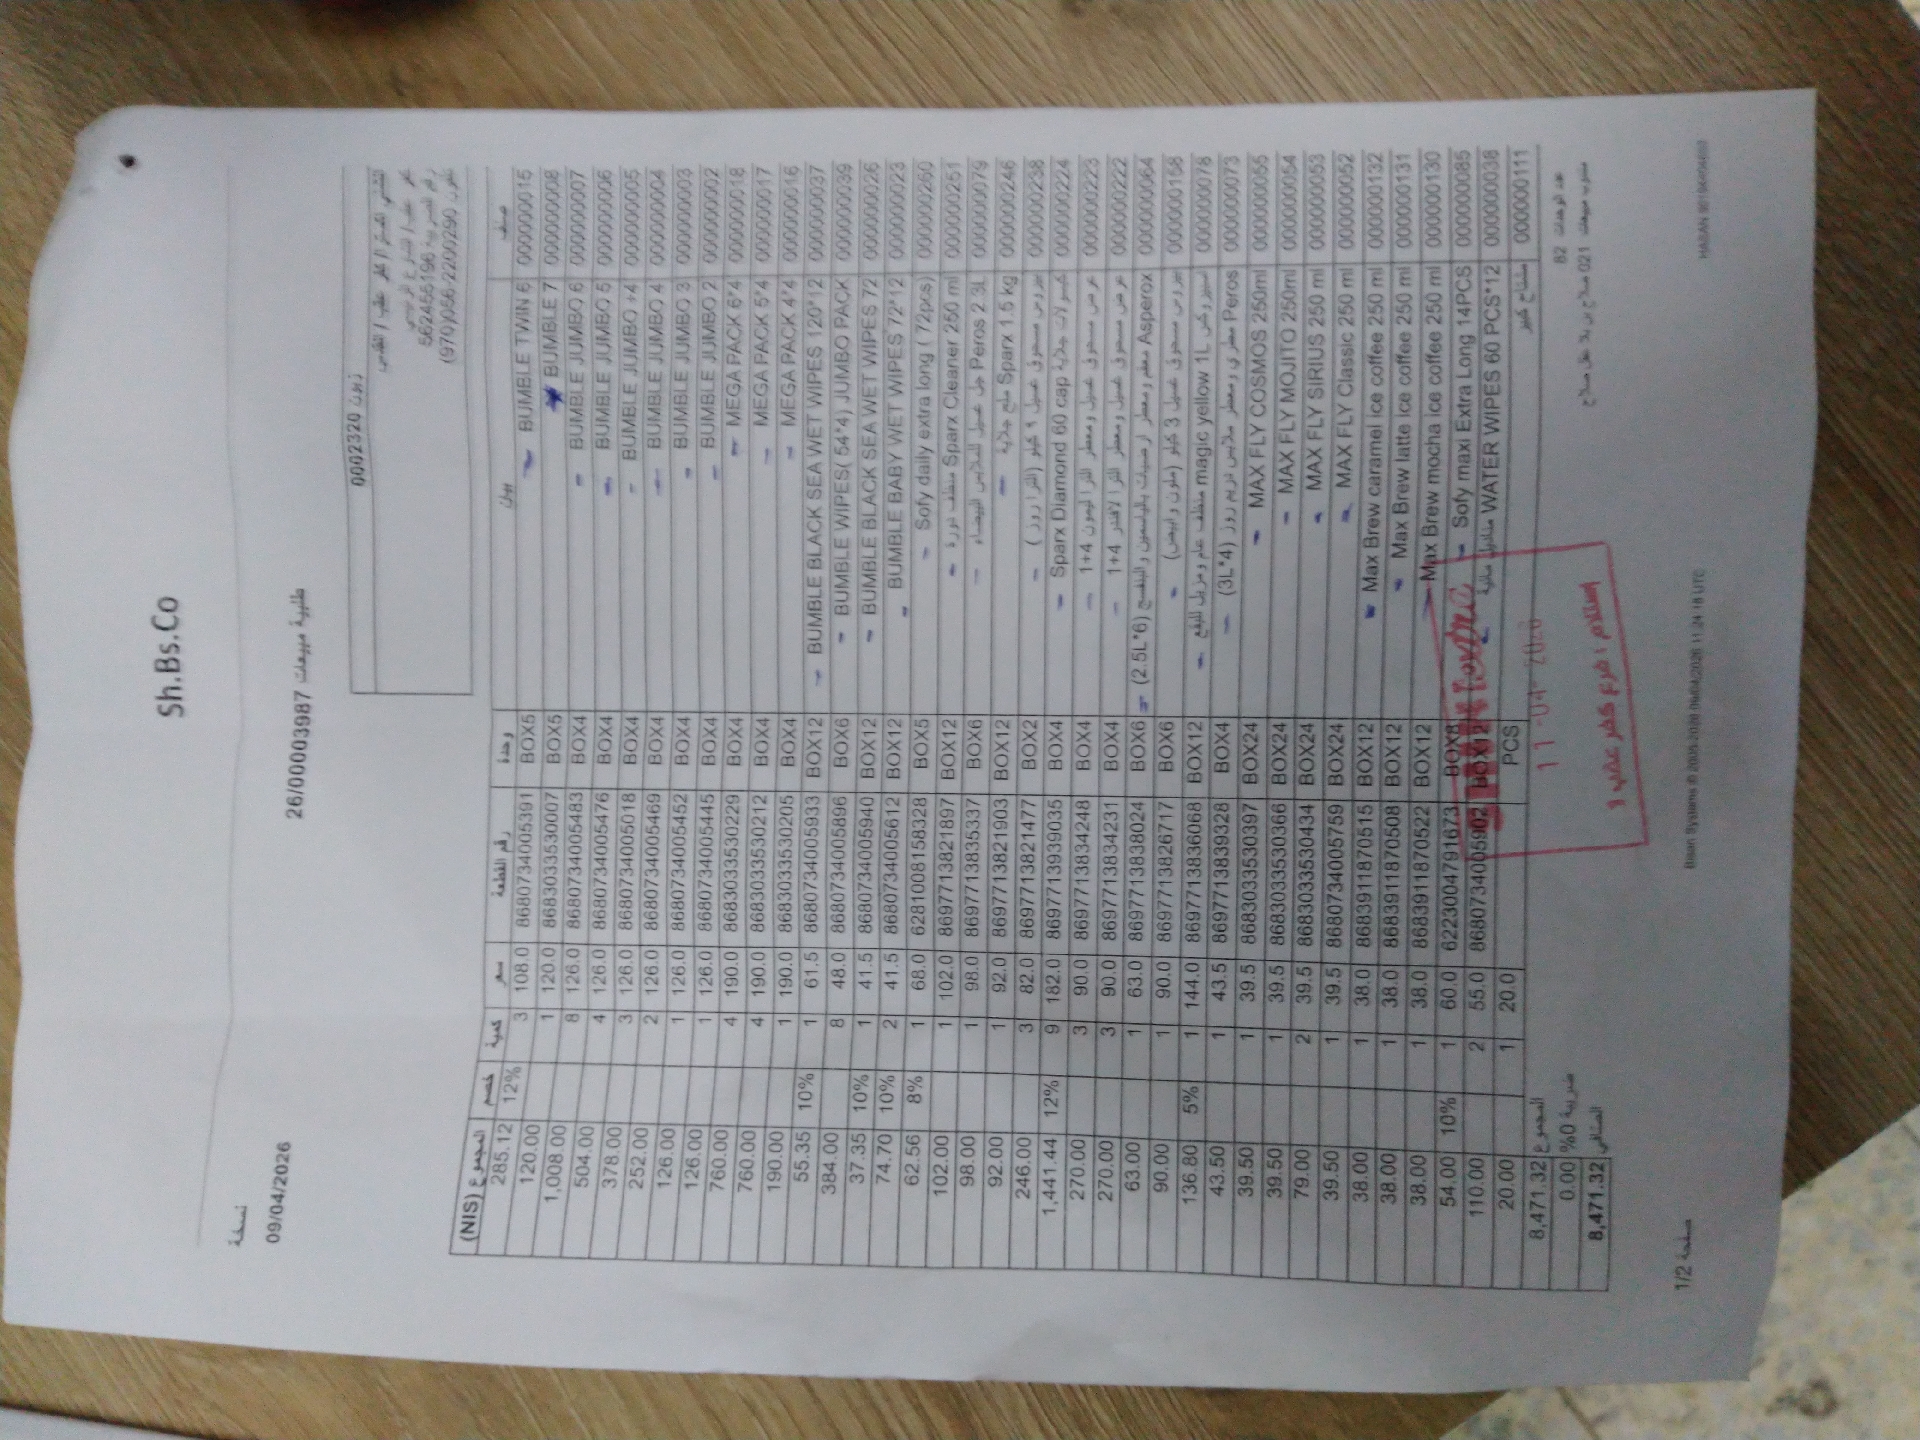 Sh.Bs.Co
نسخة
09/04/2026
طلبية مبيعات 26/00003987
زبون 0002320
رقم الضريبة 562455196
تلفون (970)056-2200290
صنف بيان وحدة رقم القطعة سعر كمية خصم المجموع (NIS)
000000015 BUMBLE TWIN 6 BOX5 8680734005391 108.0 3 12% 285.12
000000008 BUMBLE 7 BOX5 8683033530007 120.0 1 120.00
000000007 BUMBLE JUMBO 6 BOX4 8680734005483 126.0 8 1,008.00
000000006 BUMBLE JUMBO 5 BOX4 8680734005476 126.0 4 504.00
000000005 BUMBLE JUMBO +4 BOX4 8680734005018 126.0 3 378.00
000000004 BUMBLE JUMBO 4 BOX4 8680734005469 126.0 2 252.00
000000003 BUMBLE JUMBO 3 BOX4 8680734005452 126.0 1 126.00
000000002 BUMBLE JUMBO 2 BOX4 8680734005445 126.0 1 126.00
000000018 MEGA PACK 6*4 BOX4 8683033530229 190.0 4 760.00
000000017 MEGA PACK 5*4 BOX4 8683033530212 190.0 4 760.00
000000016 MEGA PACK 4*4 BOX4 8683033530205 190.0 1 190.00
000000037 BUMBLE BLACK SEA WET WIPES 120*12 BOX12 8680734005933 61.5 1 10% 55.35
000000039 BUMBLE WIPES( 54*4) JUMBO PACK BOX6 8680734005896 48.0 8 384.00
000000026 BUMBLE BLACK SEA WET WIPES 72 BOX12 8680734005940 41.5 1 10% 37.35
000000023 BUMBLE BABY WET WIPES 72*12 BOX12 8680734005612 41.5 2 10% 74.70
000000260 Sofy daily extra long ( 72pcs) BOX5 6281008158328 68.0 1 8% 62.56
000000251 منظف نورة Sparx Cleaner 250 ml BOX12 8697713821897 102.0 1 102.00
000000079 جل غسيل للملابس البيضاء Peros 2.3L BOX6 8697713835337 98.0 1 98.00
000000246 ملح جلاية Sparx 1.5 kg BOX12 8697713821903 92.0 1 92.00
000000238 بيروس مسحوق غسيل ٩ كيلو (الترا روز ) BOX2 8697713821477 82.0 3 246.00
000000224 كبسولات جلاية Sparx Diamond 60 cap BOX4 8697713939035 182.0 9 12% 1,441.44
000000223 عرض مسحوق غسيل ومعطر الترا ليمون 4+1 BOX4 8697713834248 90.0 3 270.00
000000222 عرض مسحوق غسيل ومعطر الترا لافندر 4+1 BOX4 8697713834231 90.0 3 270.00
000000064 Asperox معقم ومعطر ارضيات بالياسمين والبنفسج (2.5L*6) BOX6 8697713838024 63.0 1 63.00
000000158 بيروس مسحوق غسيل 3 كيلو (ملون وابيض) BOX6 8697713826717 90.0 1 90.00
000000078 اسبيروكس magic yellow 1L منظف عام ومزيل للبقع BOX12 8697713836068 144.0 1 5% 136.80
000000073 Peros مطري ومعطر ملابس دريم روز (3L*4) BOX4 8697713839328 43.5 1 43.50
000000055 MAX FLY COSMOS 250ml BOX24 8683033530397 39.5 1 39.50
000000054 MAX FLY MOJITO 250ml BOX24 8683033530366 39.5 1 39.50
000000053 MAX FLY SIRIUS 250 ml BOX24 8683033530434 39.5 2 79.00
000000052 MAX FLY Classic 250 ml BOX24 8680734005759 39.5 1 39.50
000000132 Max Brew caramel ice coffee 250 ml BOX12 8683911870515 38.0 1 38.00
000000131 Max Brew latte ice coffee 250 ml BOX12 8683911870508 38.0 1 38.00
000000130 Max Brew mocha ice coffee 250 ml BOX12 8683911870522 38.0 1 38.00
000000085 Sofy maxi Extra Long 14PCS BOX8 6223004791673 60.0 1 10% 54.00
000000038 مناديل مائية WATER WIPES 60 PCS*12 BOX12 8680734005902 55.0 2 110.00
000000111 ستاج كبير PCS 20.0 1 20.00
عدد الوحدات 82
المجموع 8,471.32
ضريبة 0% 0.00
الصافي 8,471.32
مندوب مبيعات 021
11-04-2026
استلام : فرع كفر عقب 1
صفحة 1/2